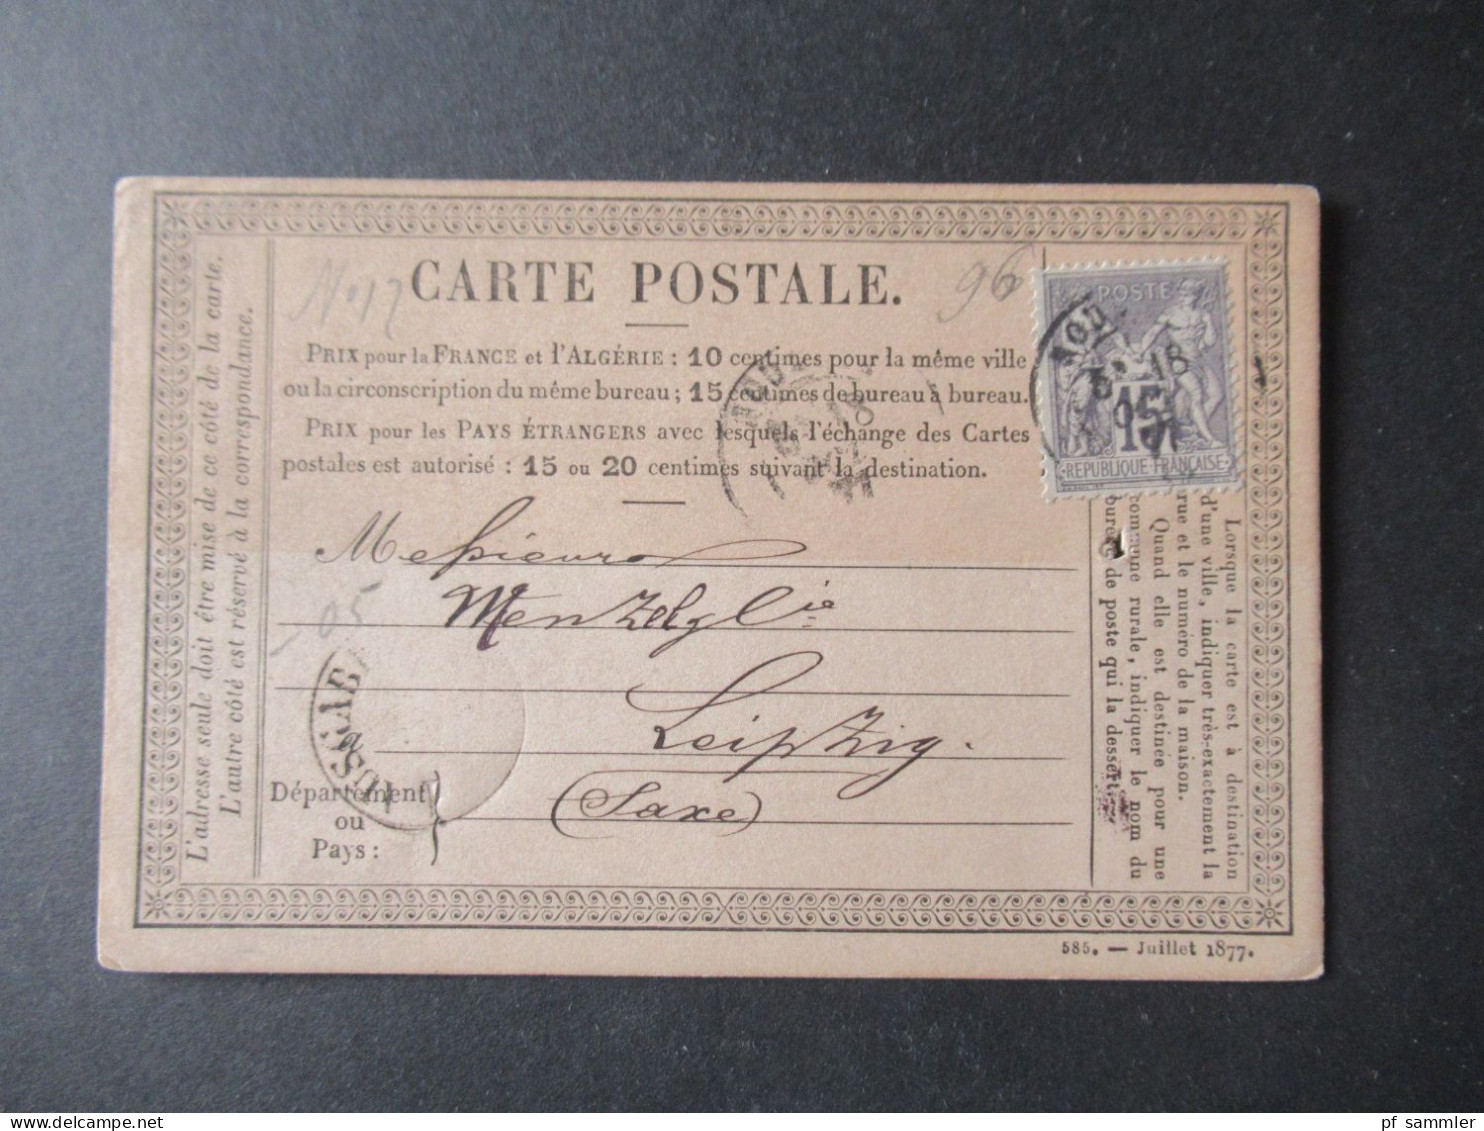 CARTE POSTALE.
No 12
96
PRIX pour la FRANCE et l'ALGÉRIE : 10 centimes pour la même ville
ou la circonscription du même bureau ; 15 centimes de bureau à bureau.
PRIX pour les PAYS ÉTRANGERS avec lesquels l'échange des Cartes
postales est autorisé : 15 ou 20 centimes suivant la destination.
POSTE
15
REPUBLIQUE FRANÇAISE
18
Messieurs
Menzel & Cie
Leipzig.
(Saxe)
05
Département
ou
Pays :
L'adresse seule doit être mise de ce côté de la carte.
L'autre côté est réservé à la correspondance.
Lorsque la carte est à destination
d'une ville, indiquer très-exactement la
rue et le numéro de la maison.
Quand elle est destinée pour une
commune rurale, indiquer le nom du
bureau de poste qui la dessert.
585. — Juillet 1877.
pf sammler